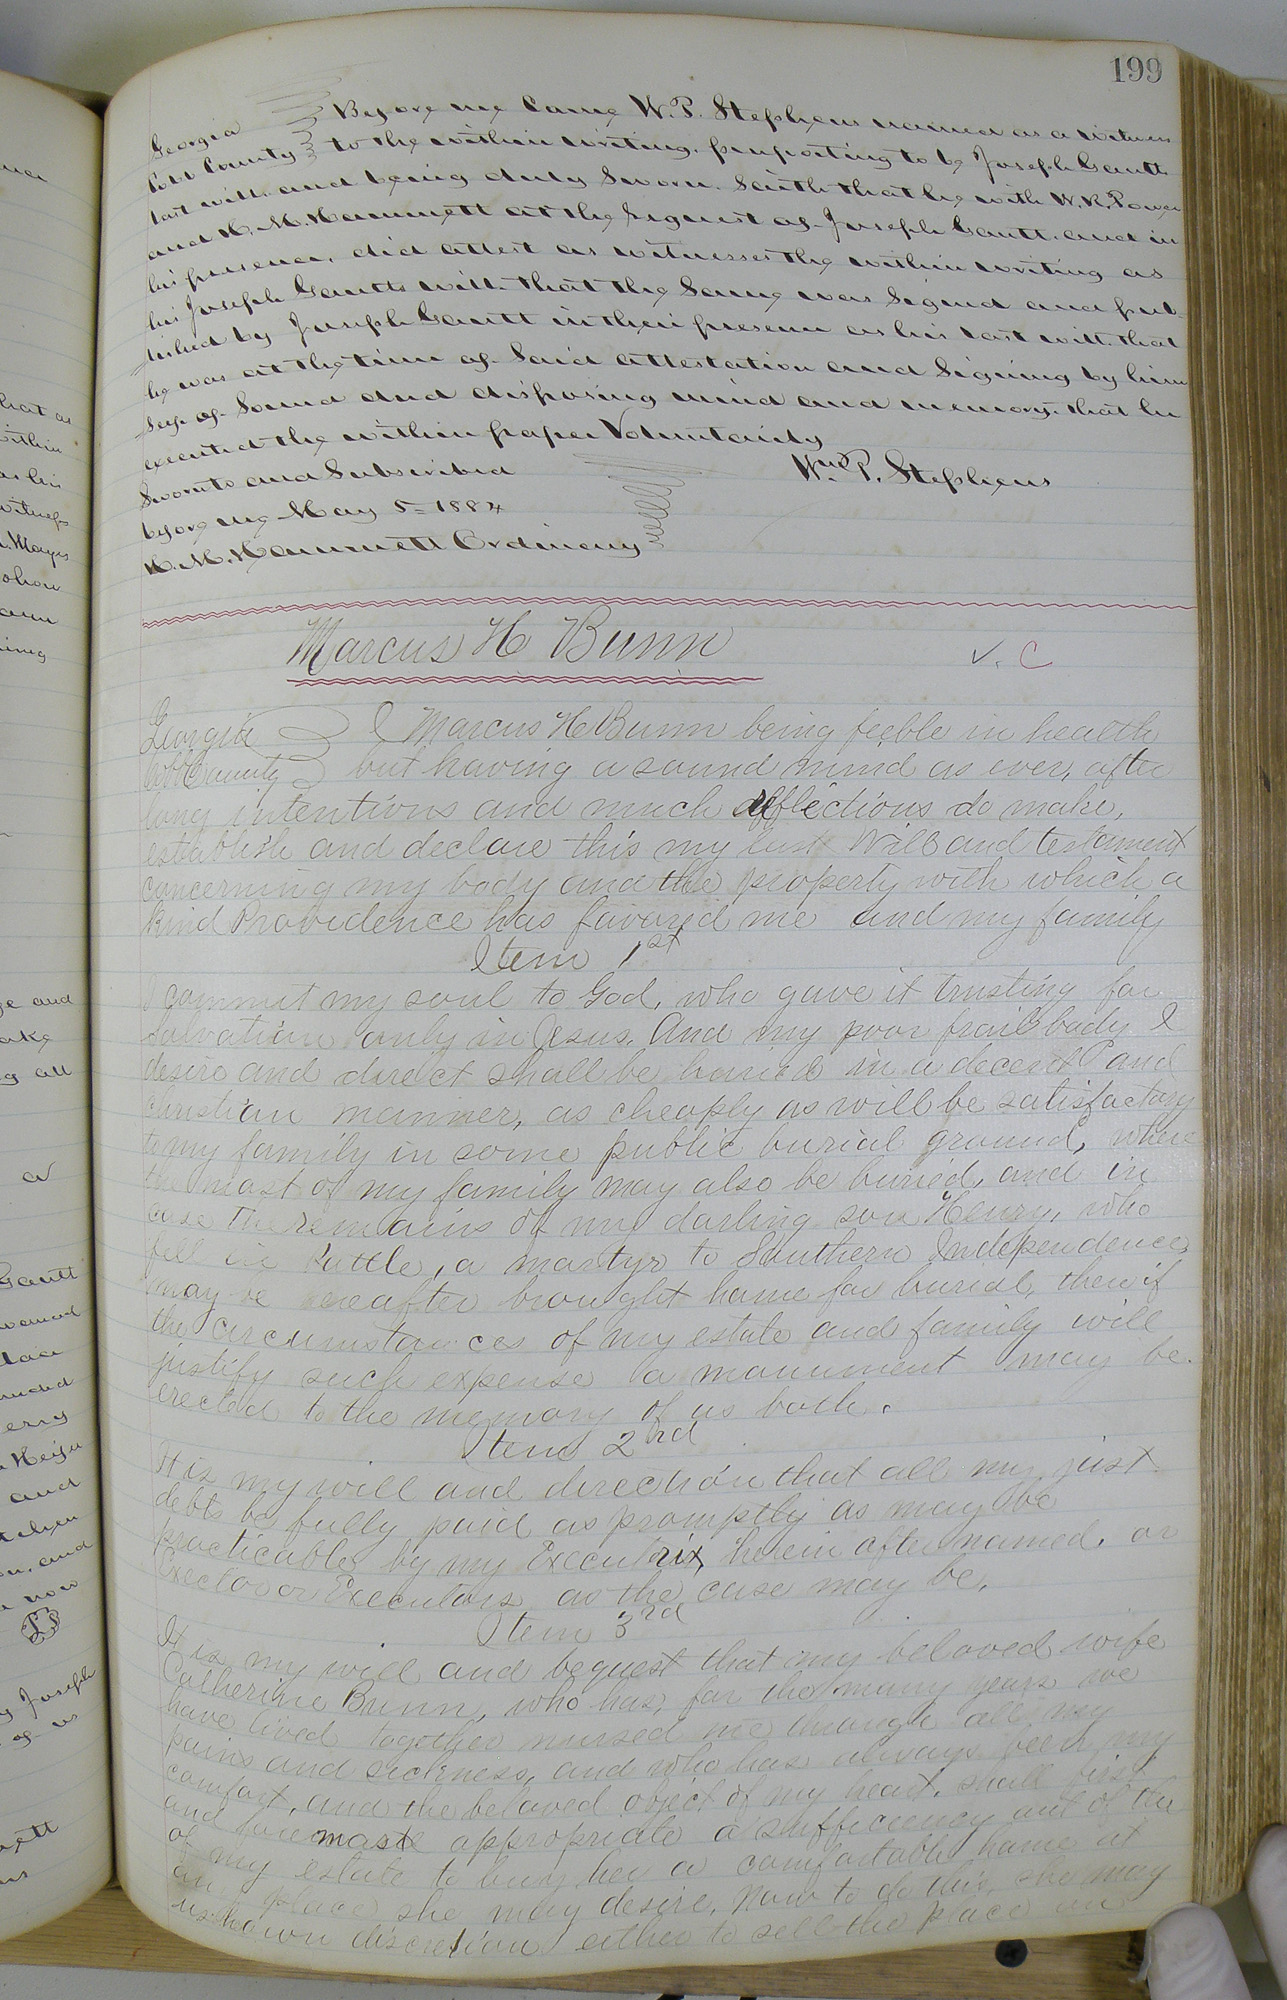 199
Georgia Before me Came W. P. Stephens named as a witness
Cobb County to the within writing, purporting to be Joseph Gantts
last will and being duly Sworn. Saith that he with W. R. Power
and H. M. Hammett at the request of Joseph Gantt. and in
his presence, did attest as witnesses the within writing as
his Joseph Gantts will. that the Same was Signed and pub-
lished by Joseph Gantt in their presence as his last will. that
he was at the time of Said attestation and Signing by him
self of Sound and disposing mind and memory. that he
executed the within paper Voluntarily
Sworn to and Subscribed Wm P. Stephens
before me May 5= 1884
H. M. Hammett Ordinary
Marcus H Bunn V. C
Georgia I Marcus H Bunn being feeble in health
Cobb County but having a sound mind as ever, after
long intentions and much reflections do make,
establish and declare this my last Will and testament
concerning my body and the property with which a
kind Providence has favored me and my family
Item 1st
I commit my soul to God, who gave it trusting for
Salvation only in Jesus. And my poor frail body I
desire and direct shall be buried in a decent and
christian manner, as cheaply as will be satisfactory
to my family in some public burial ground, where
the most of my family may also be buried, and in
case The remains of my darling son Henry, who
fell in battle, a martyr to Southern Independence,
may be hereafter brought home for burial, then if
the circumstances of my estate and family will
justify such expense a monument may be
erected to the memory of us both.
Item 2nd
It is my will and direction that all my just
debts be fully paid as promptly as may be
practicable, by my Executrix, herein after named, or
Exector or Executors as the case may be.
Item 3rd
It is my will and bequest that my beloved wife
Catherine Bunn, who has, for the many years we
have lived together nursed me through all my
pains and sickness, and who has always been my
comfort, and the beloved object of my heart, shall first
and foremost appropriate a sufficiency out of the
of my estate to buy her a comfortable home at
any place she may desire, Now to do this, she may
us her own discretion either to sell the place on